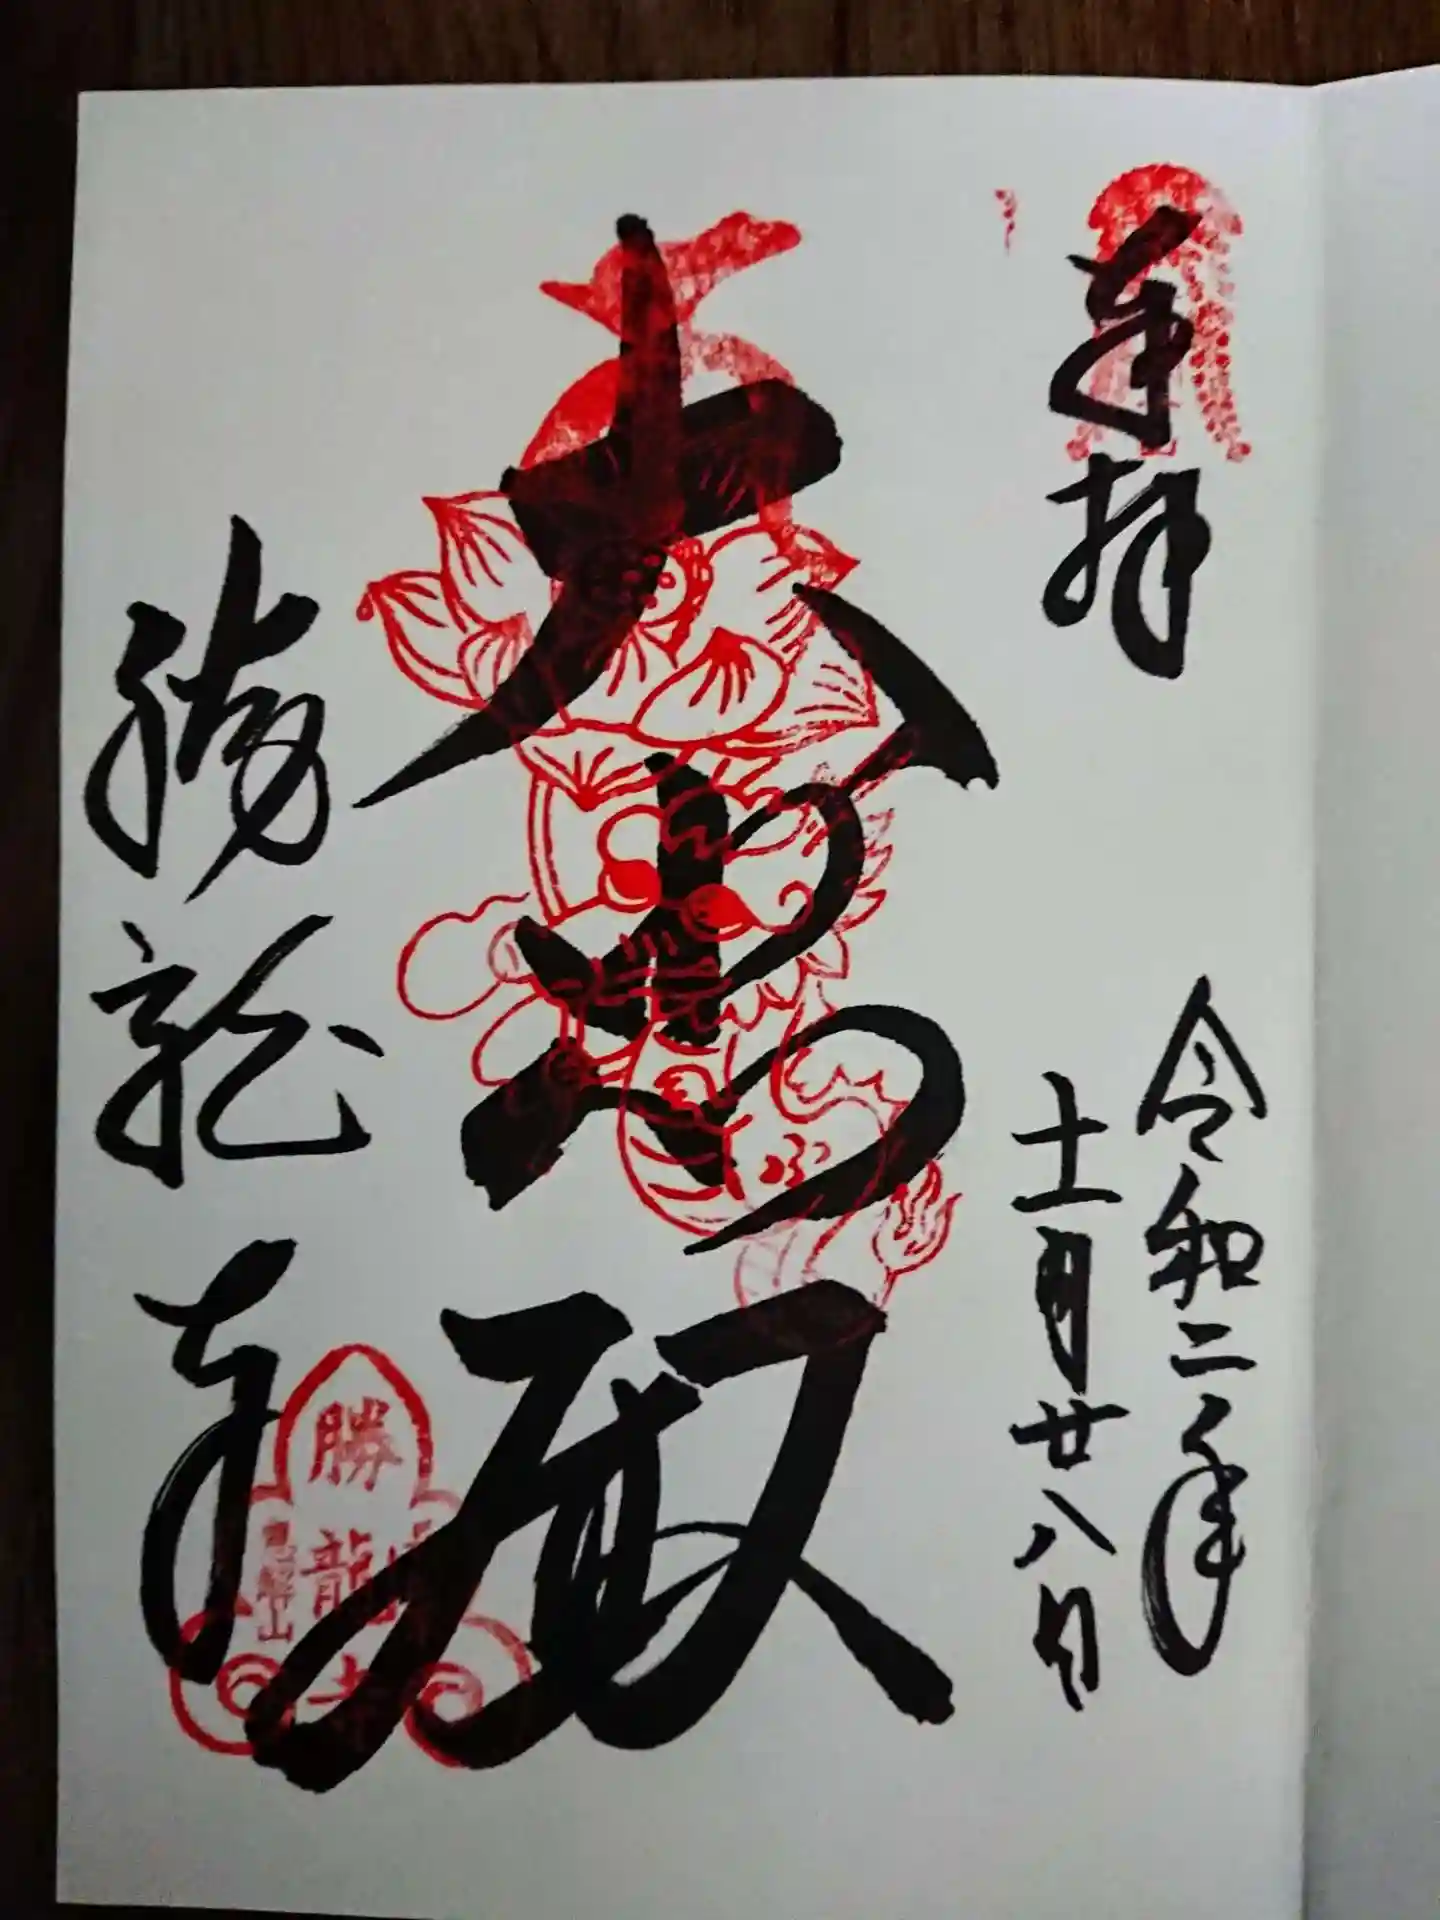 奉拝
令和二年
十一月廿八日
大悲殿
勝龍寺
勝龍寺
恵解山